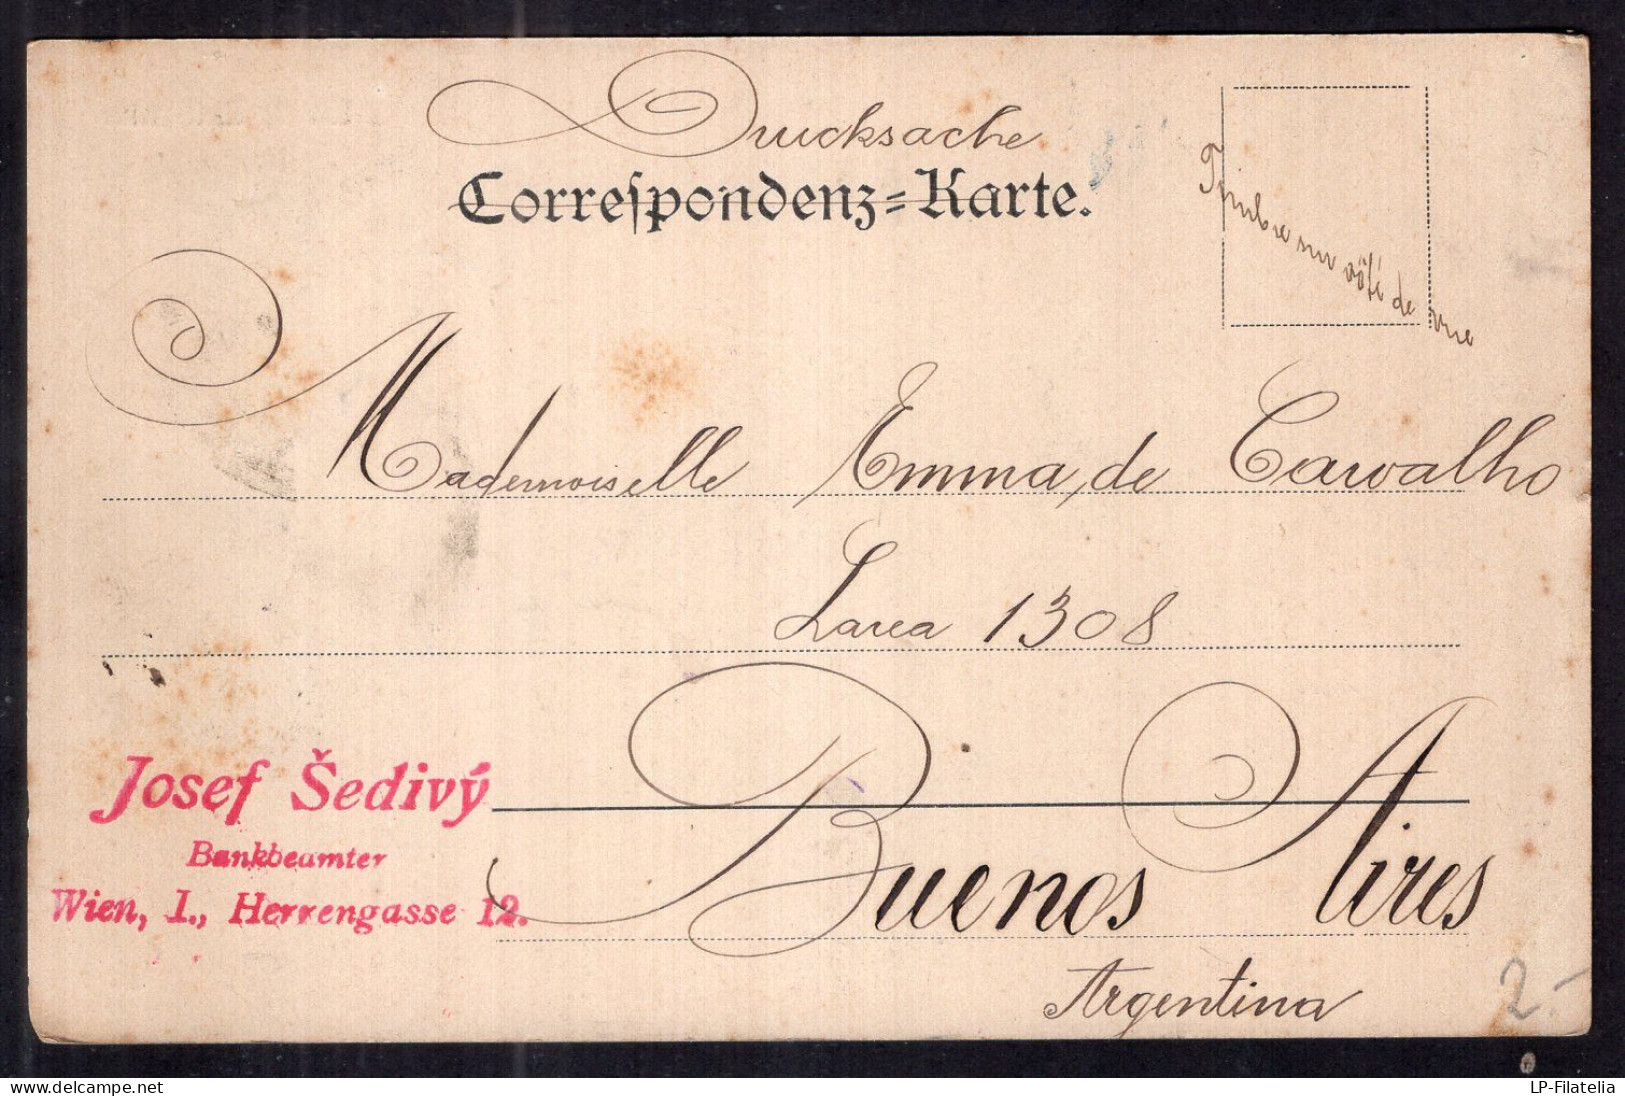 Drucksache
Correspondenz-Karte.
Timbre sur côté de vue
Mademoiselle Emma, de Carvalho
Larea 1308
Josef Šedivý
Bankbeamter
Wien, I., Herrengasse 12.
Buenos Aires
Argentina
2.-
LP-Filatelia